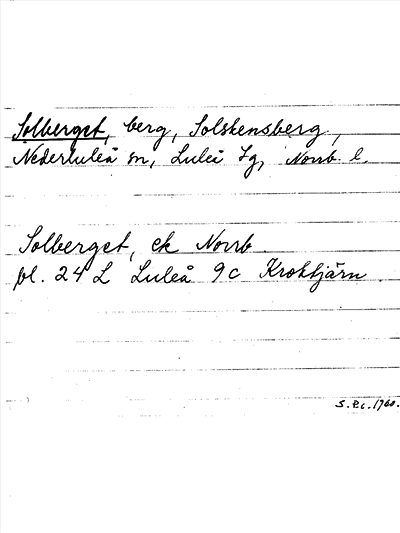 Solberget, berg, Solskensberg,
Nederluleå sn, Luleå tg, Norrb. l.
Solberget, ek Norrb.
pl. 24 L Luleå 9c Kroktjärn.
S. 1960.